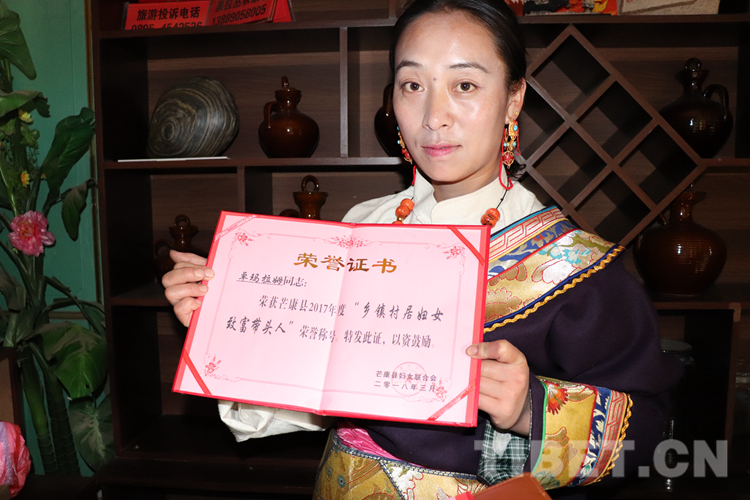 旅游投诉电话
0895-4542526
13889058005
荣誉证书
卓玛拉姆同志：
荣获芒康县2017年度“乡镇村居妇女
致富带头人”荣誉称号。特发此证，以资鼓励。
芒康县妇女联合会
二〇一八年三月
TIBET.CN